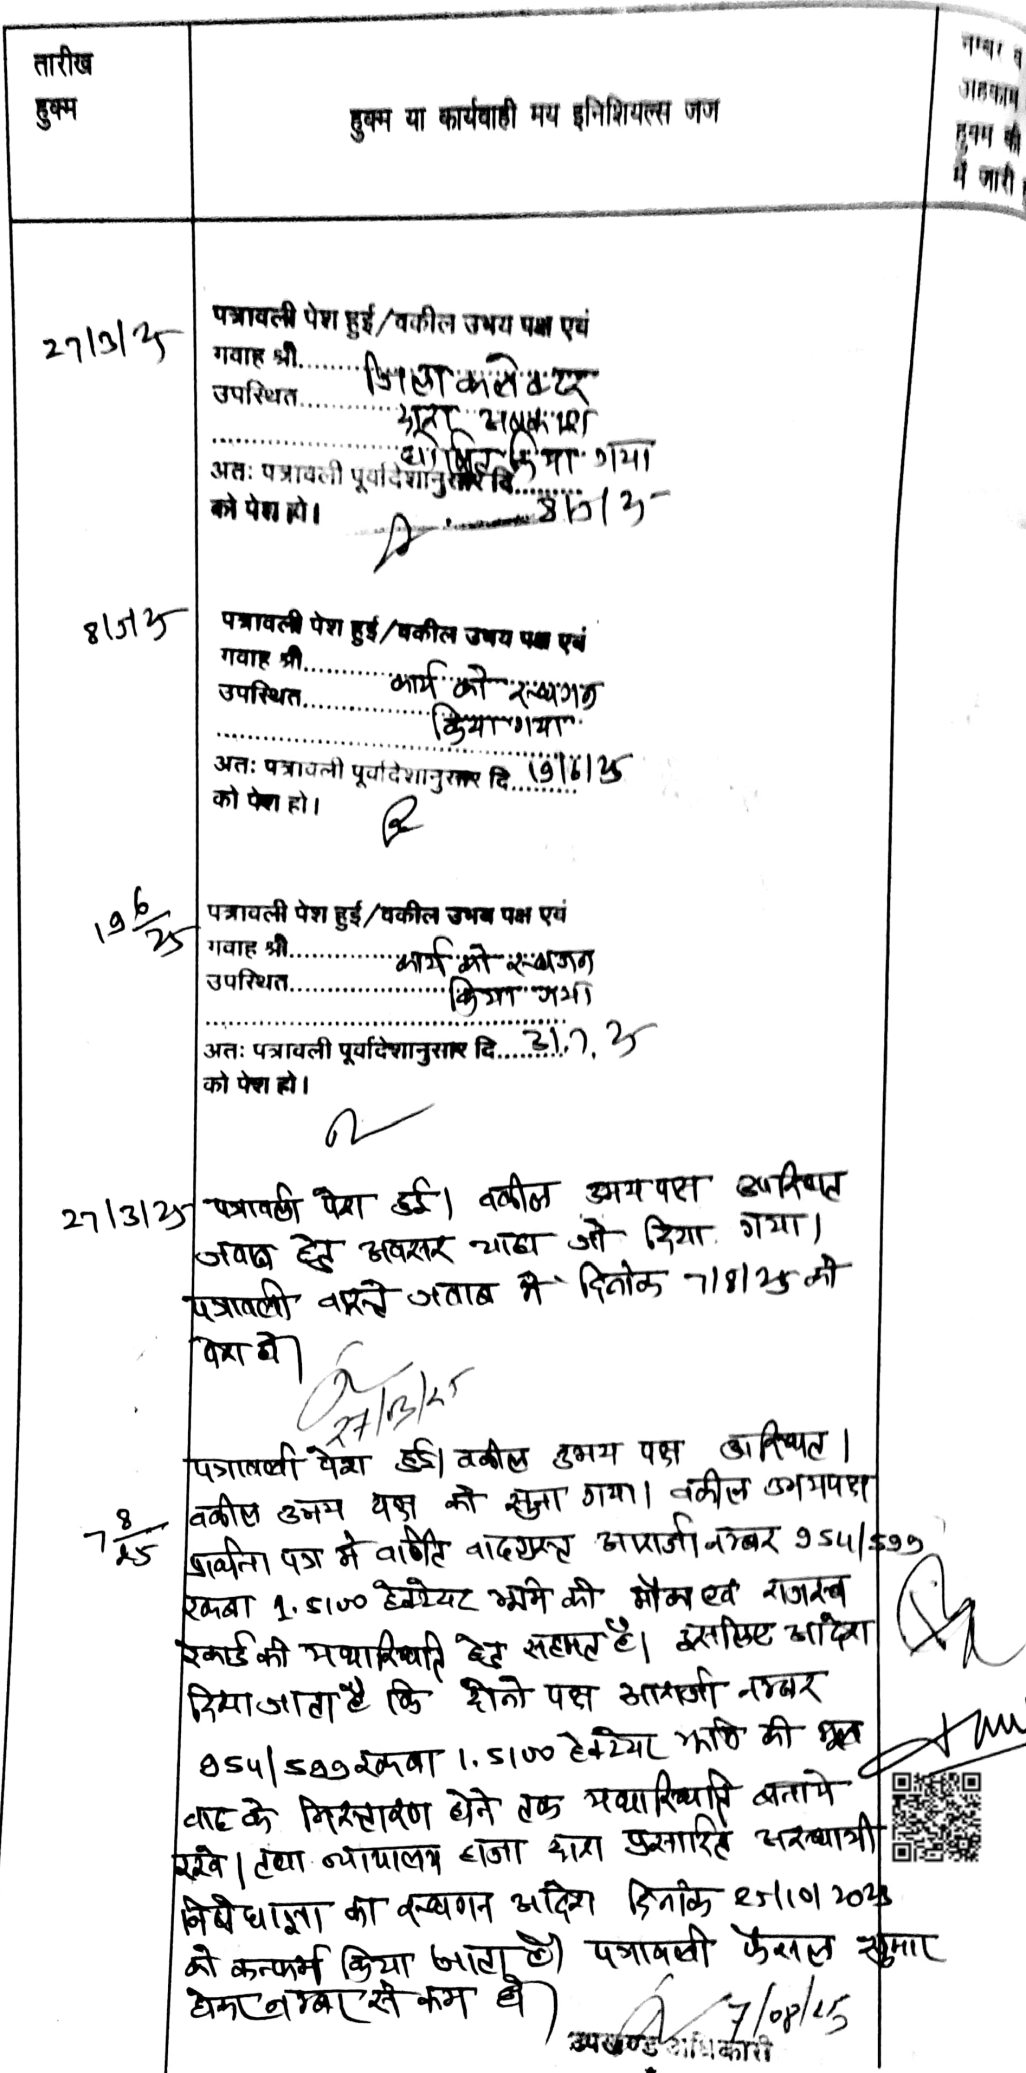 तारीख
हुक्म
हुक्म या कार्यवाही मय इनिशियल्स जज
नम्बर व
अहकाम
हुक्म की
में जारी
27/3/25
पत्रावली पेश हुई/वकील उभय पक्ष एवं
गवाह श्री.......... जिला कलेक्टर
उपस्थित.......... द्वारा अवकाश
घोषित किया गया
अतः पत्रावली पूर्वादेशानुसार दि.......... 8/5/25
को पेश हो।
8/5/25
पत्रावली पेश हुई/वकील उभय पक्ष एवं
गवाह श्री.......... कार्य को स्थगन
उपस्थित.......... किया गया
अतः पत्रावली पूर्वादेशानुसार दि.......... 19/6/25
को पेश हो।
19 6/25
पत्रावली पेश हुई/वकील उभय पक्ष एवं
गवाह श्री.......... कार्य को स्थगन
उपस्थित.......... किया गया
अतः पत्रावली पूर्वादेशानुसार दि.......... 31.7.25
को पेश हो।
27/3/25 पत्रावली पेश हुई। वकील उभय पक्ष उपस्थित
जवाब हेतु अवसर चाहा जो दिया गया।
पत्रावली वास्ते जवाब में दिनांक 7/8/25 को
पेश हो।
27/03/25
पत्रावली पेश हुई। वकील उभय पक्ष उपस्थित।
7 8/25
वकील उभय पक्ष को सुना गया। वकील उभयपक्ष
प्रार्थना पत्र में वर्णित वादग्रस्त आराजी नम्बर 954/599
रकबा 1.5100 हेक्टेयर भूमि की मौका एवं राजस्व
रेकार्ड की यथास्थिति हेतु सहमत है। इसलिए आदेश
दिया जाता है कि दोनो पक्ष आराजी नम्बर
954/599 रकबा 1.5100 हेक्टेयर भूमि की मूल
वाद के निस्तारण होने तक यथास्थिति बनाये
रखे। तथा न्यायालय हाजा द्वारा प्रसारित अस्थायी
निषेधाज्ञा का स्थगन आदेश दिनांक 25/10/2023
को कन्फर्म किया जाता है। पत्रावली फैसल शुमार
होकर नम्बर से कम हो।
7/08/25
उपखण्ड अधिकारी